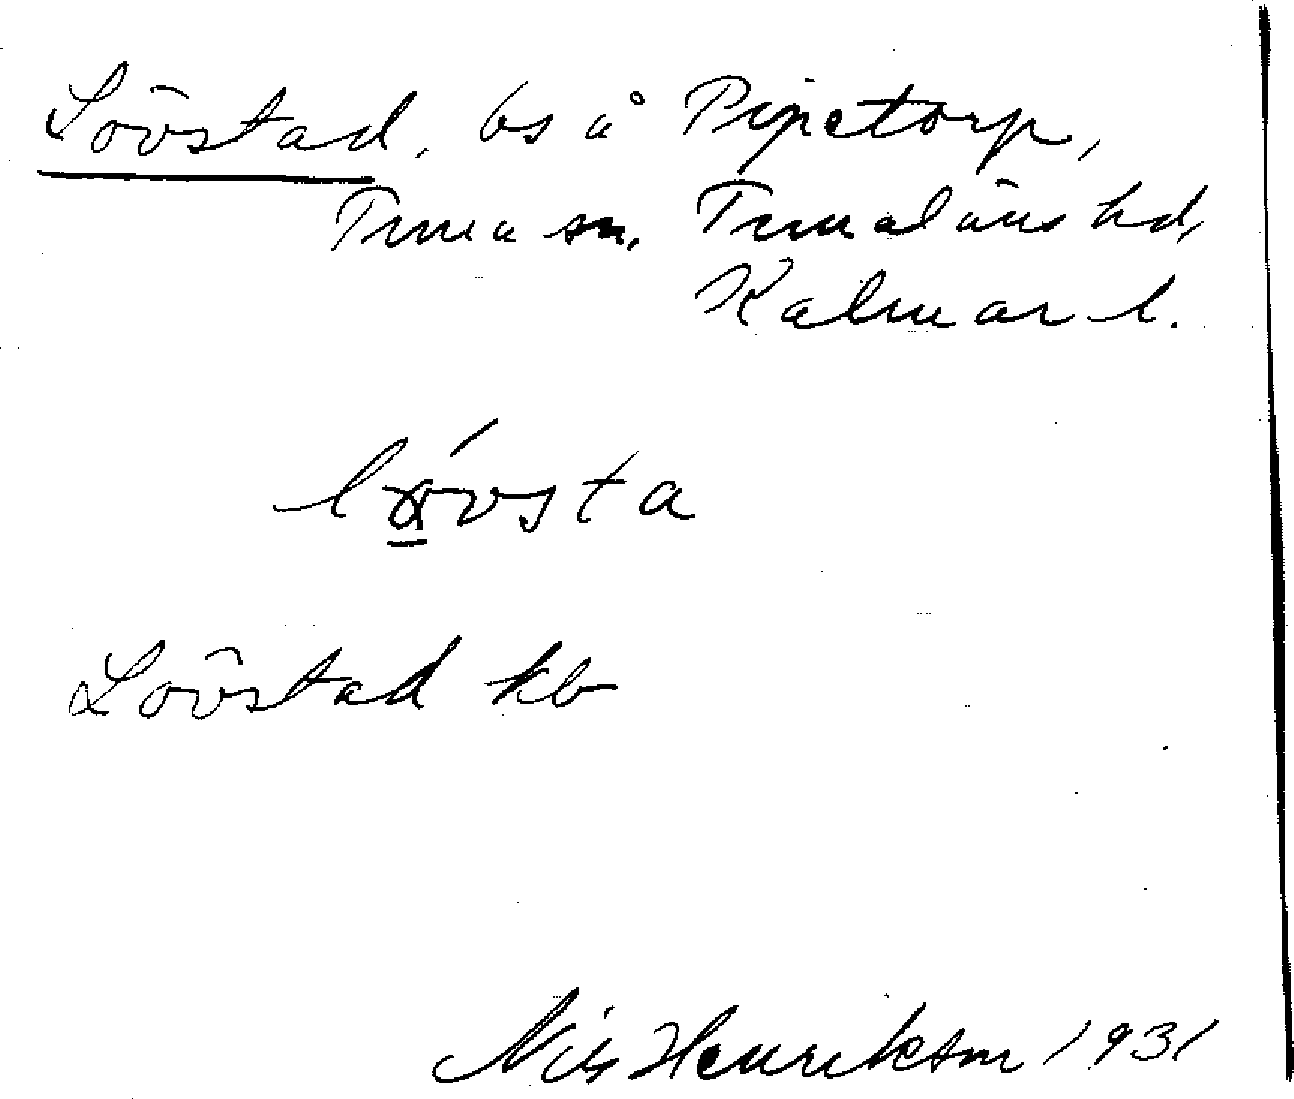 Lövstad, bs å Pipetorp,
Tuna sn, Tunaläns hd,
Kalmar l.
lövsta
Lövstad kb
Nils Henrikson 1931